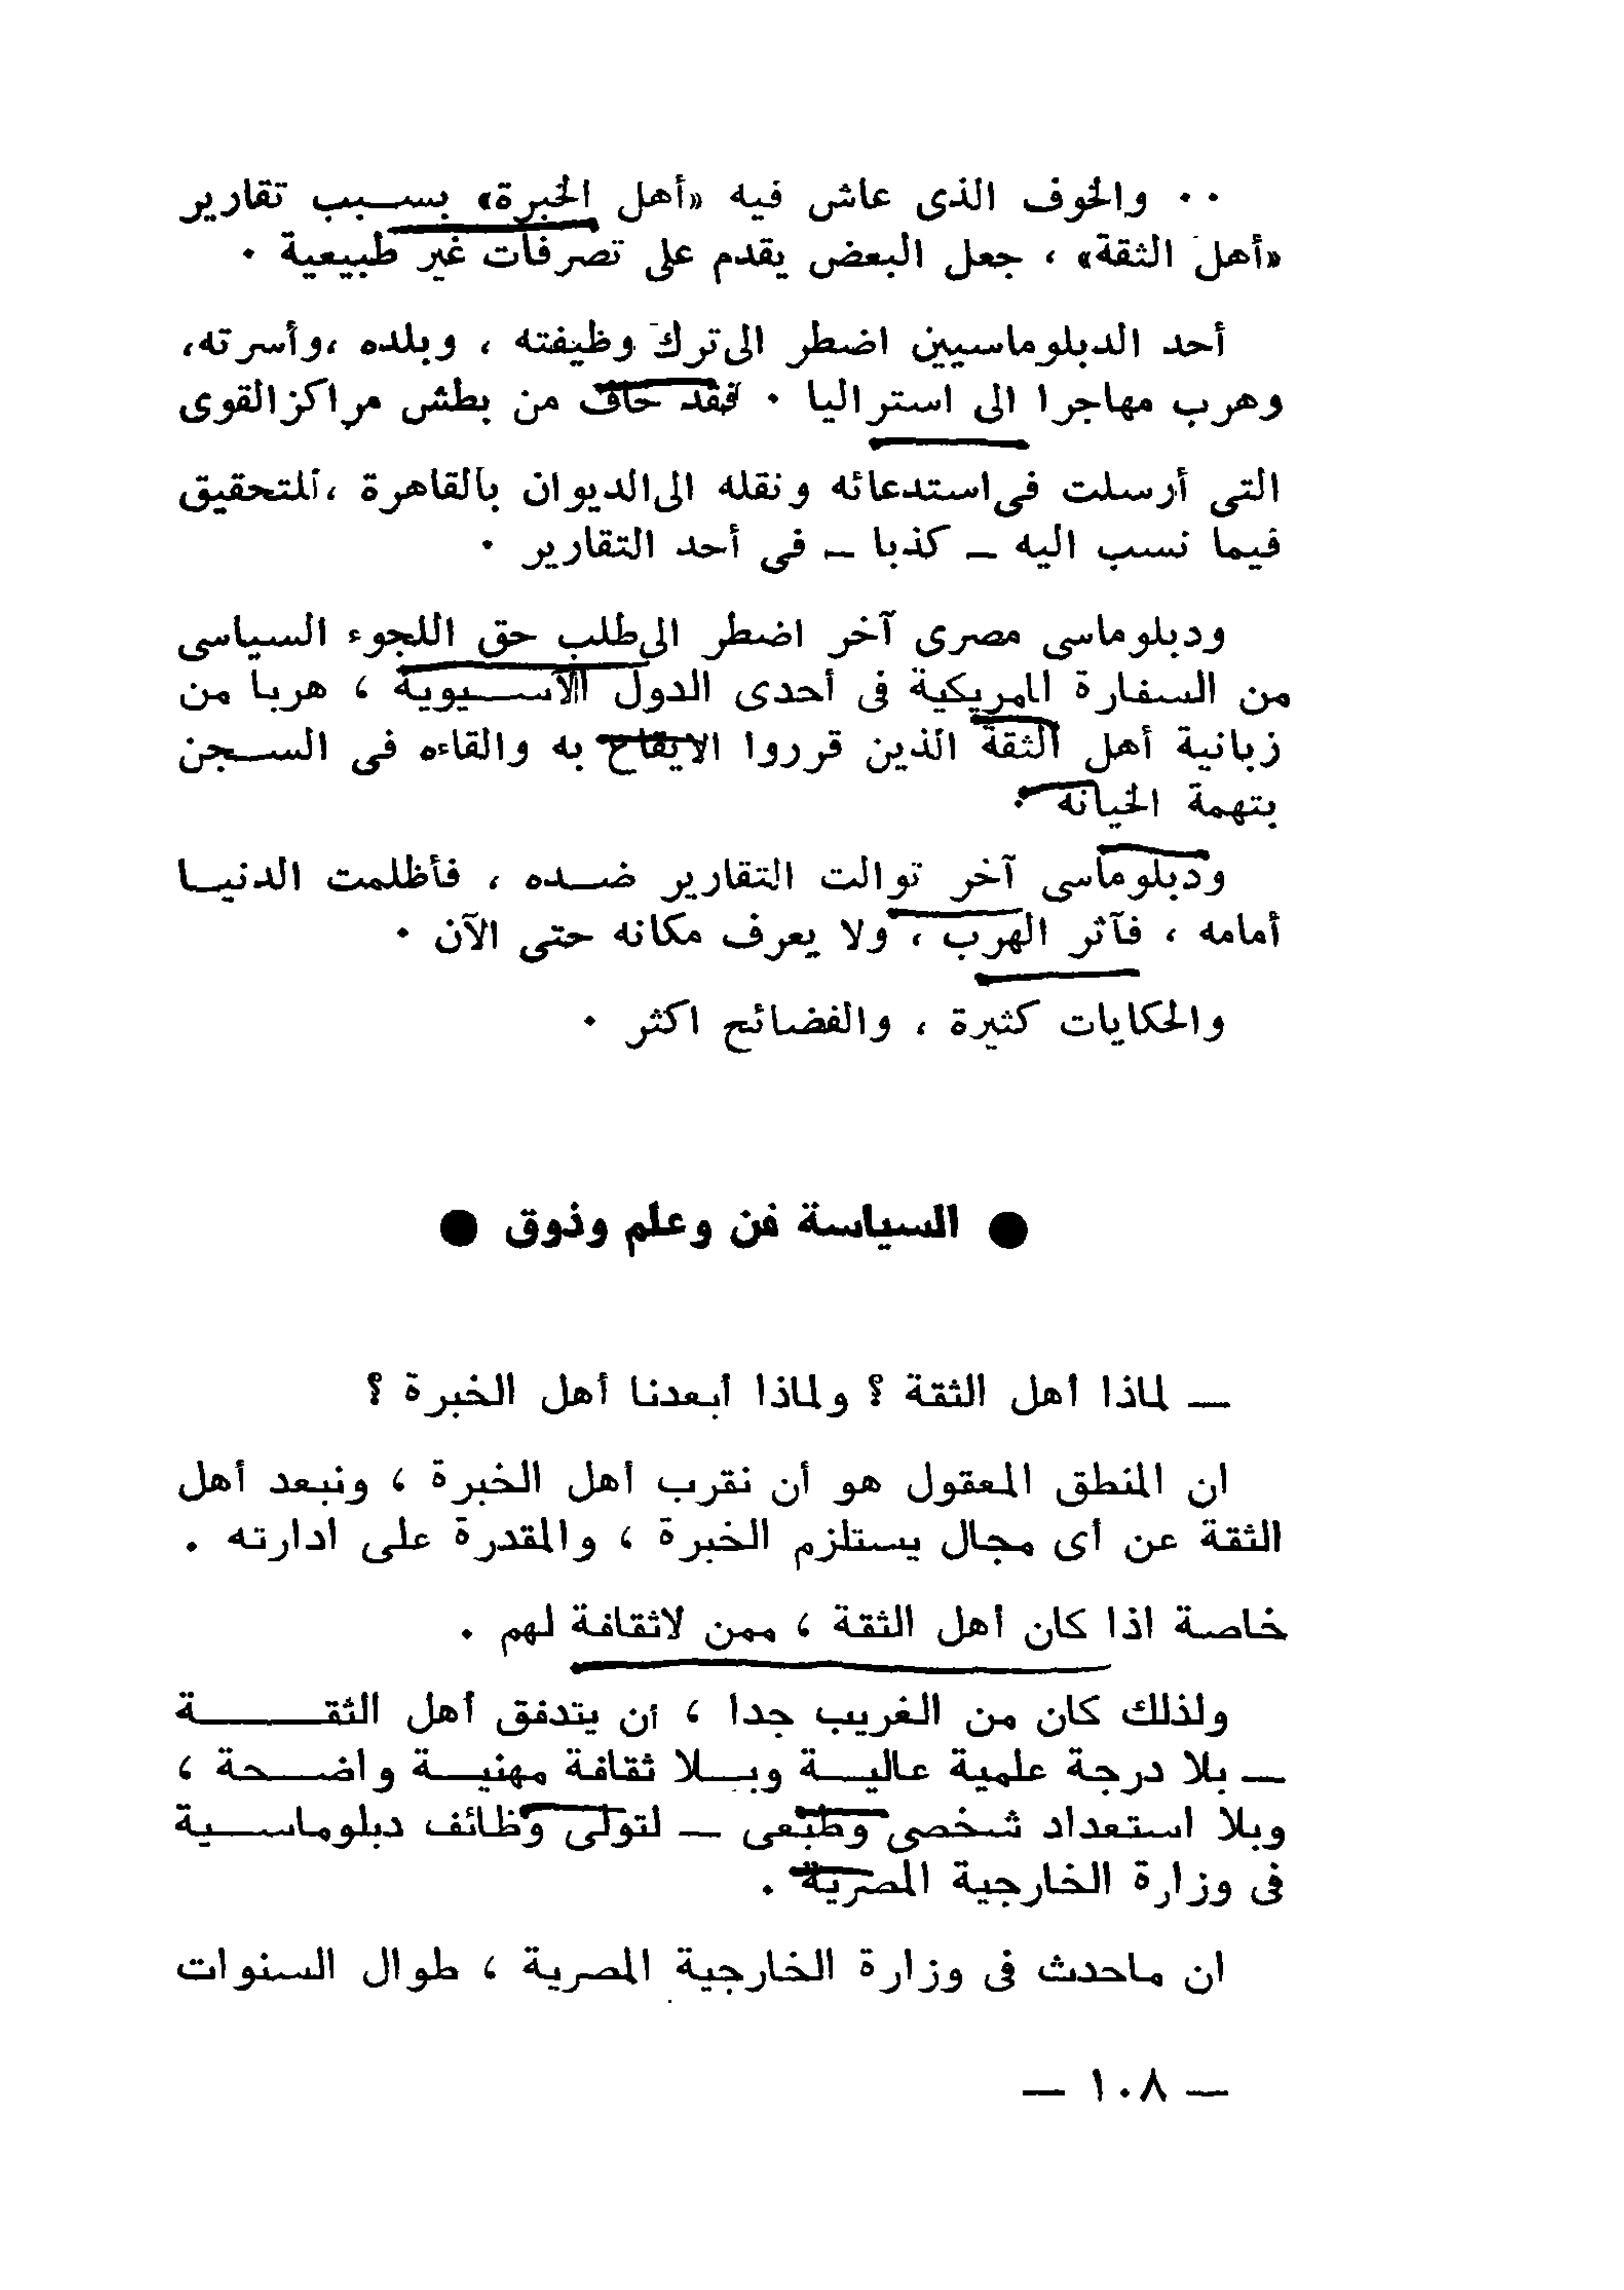 .. والخوف الذى عاش فيه «أهل الخبرة» بسبب تقارير
«أهل الثقة» ، جعل البعض يقدم على تصرفات غير طبيعية .
أحد الدبلوماسيين اضطر الى ترك وظيفته ، وبلده ،وأسرته،
وهرب مهاجرا الى استراليا . فقد خاف من بطش مراكز القوى
التى أرسلت فى استدعائه ونقله الى الديوان بالقاهرة ، للتحقيق
فيما نسب اليه ـ كذبا ـ فى أحد التقارير .
ودبلوماسى مصرى آخر اضطر الى طلب حق اللجوء السياسى
من السفارة الامريكية فى أحدى الدول الآسيوية ، هربا من
زبانية أهل الثقة الذين قرروا الايقاع به والقاءه فى السجن
بتهمة الخيانة .
ودبلوماسى آخر توالت التقارير ضده ، فأظلمت الدنيا
أمامه ، فآثر الهرب ، ولا يعرف مكانه حتى الآن .
والحكايات كثيرة ، والفضائح اكثر .
● السياسة فن وعلم وذوق ●
— لماذا أهل الثقة ؟ ولماذا أبعدنا أهل الخبرة ؟
ان المنطق المعقول هو أن نقرب أهل الخبرة ، ونبعد أهل
الثقة عن أى مجال يستلزم الخبرة ، والمقدرة على ادارته .
خاصة اذا كان أهل الثقة ، ممن لاثقافة لهم .
ولذلك كان من الغريب جدا ، أن يتدفق أهل الثقة
— بلا درجة علمية عالية وبلا ثقافة مهنية واضحة ،
وبلا استعداد شخصى وطبعى — لتولى وظائف دبلوماسية
فى وزارة الخارجية المصرية .
ان ماحدث فى وزارة الخارجية المصرية ، طوال السنوات
— ١٠٨ —